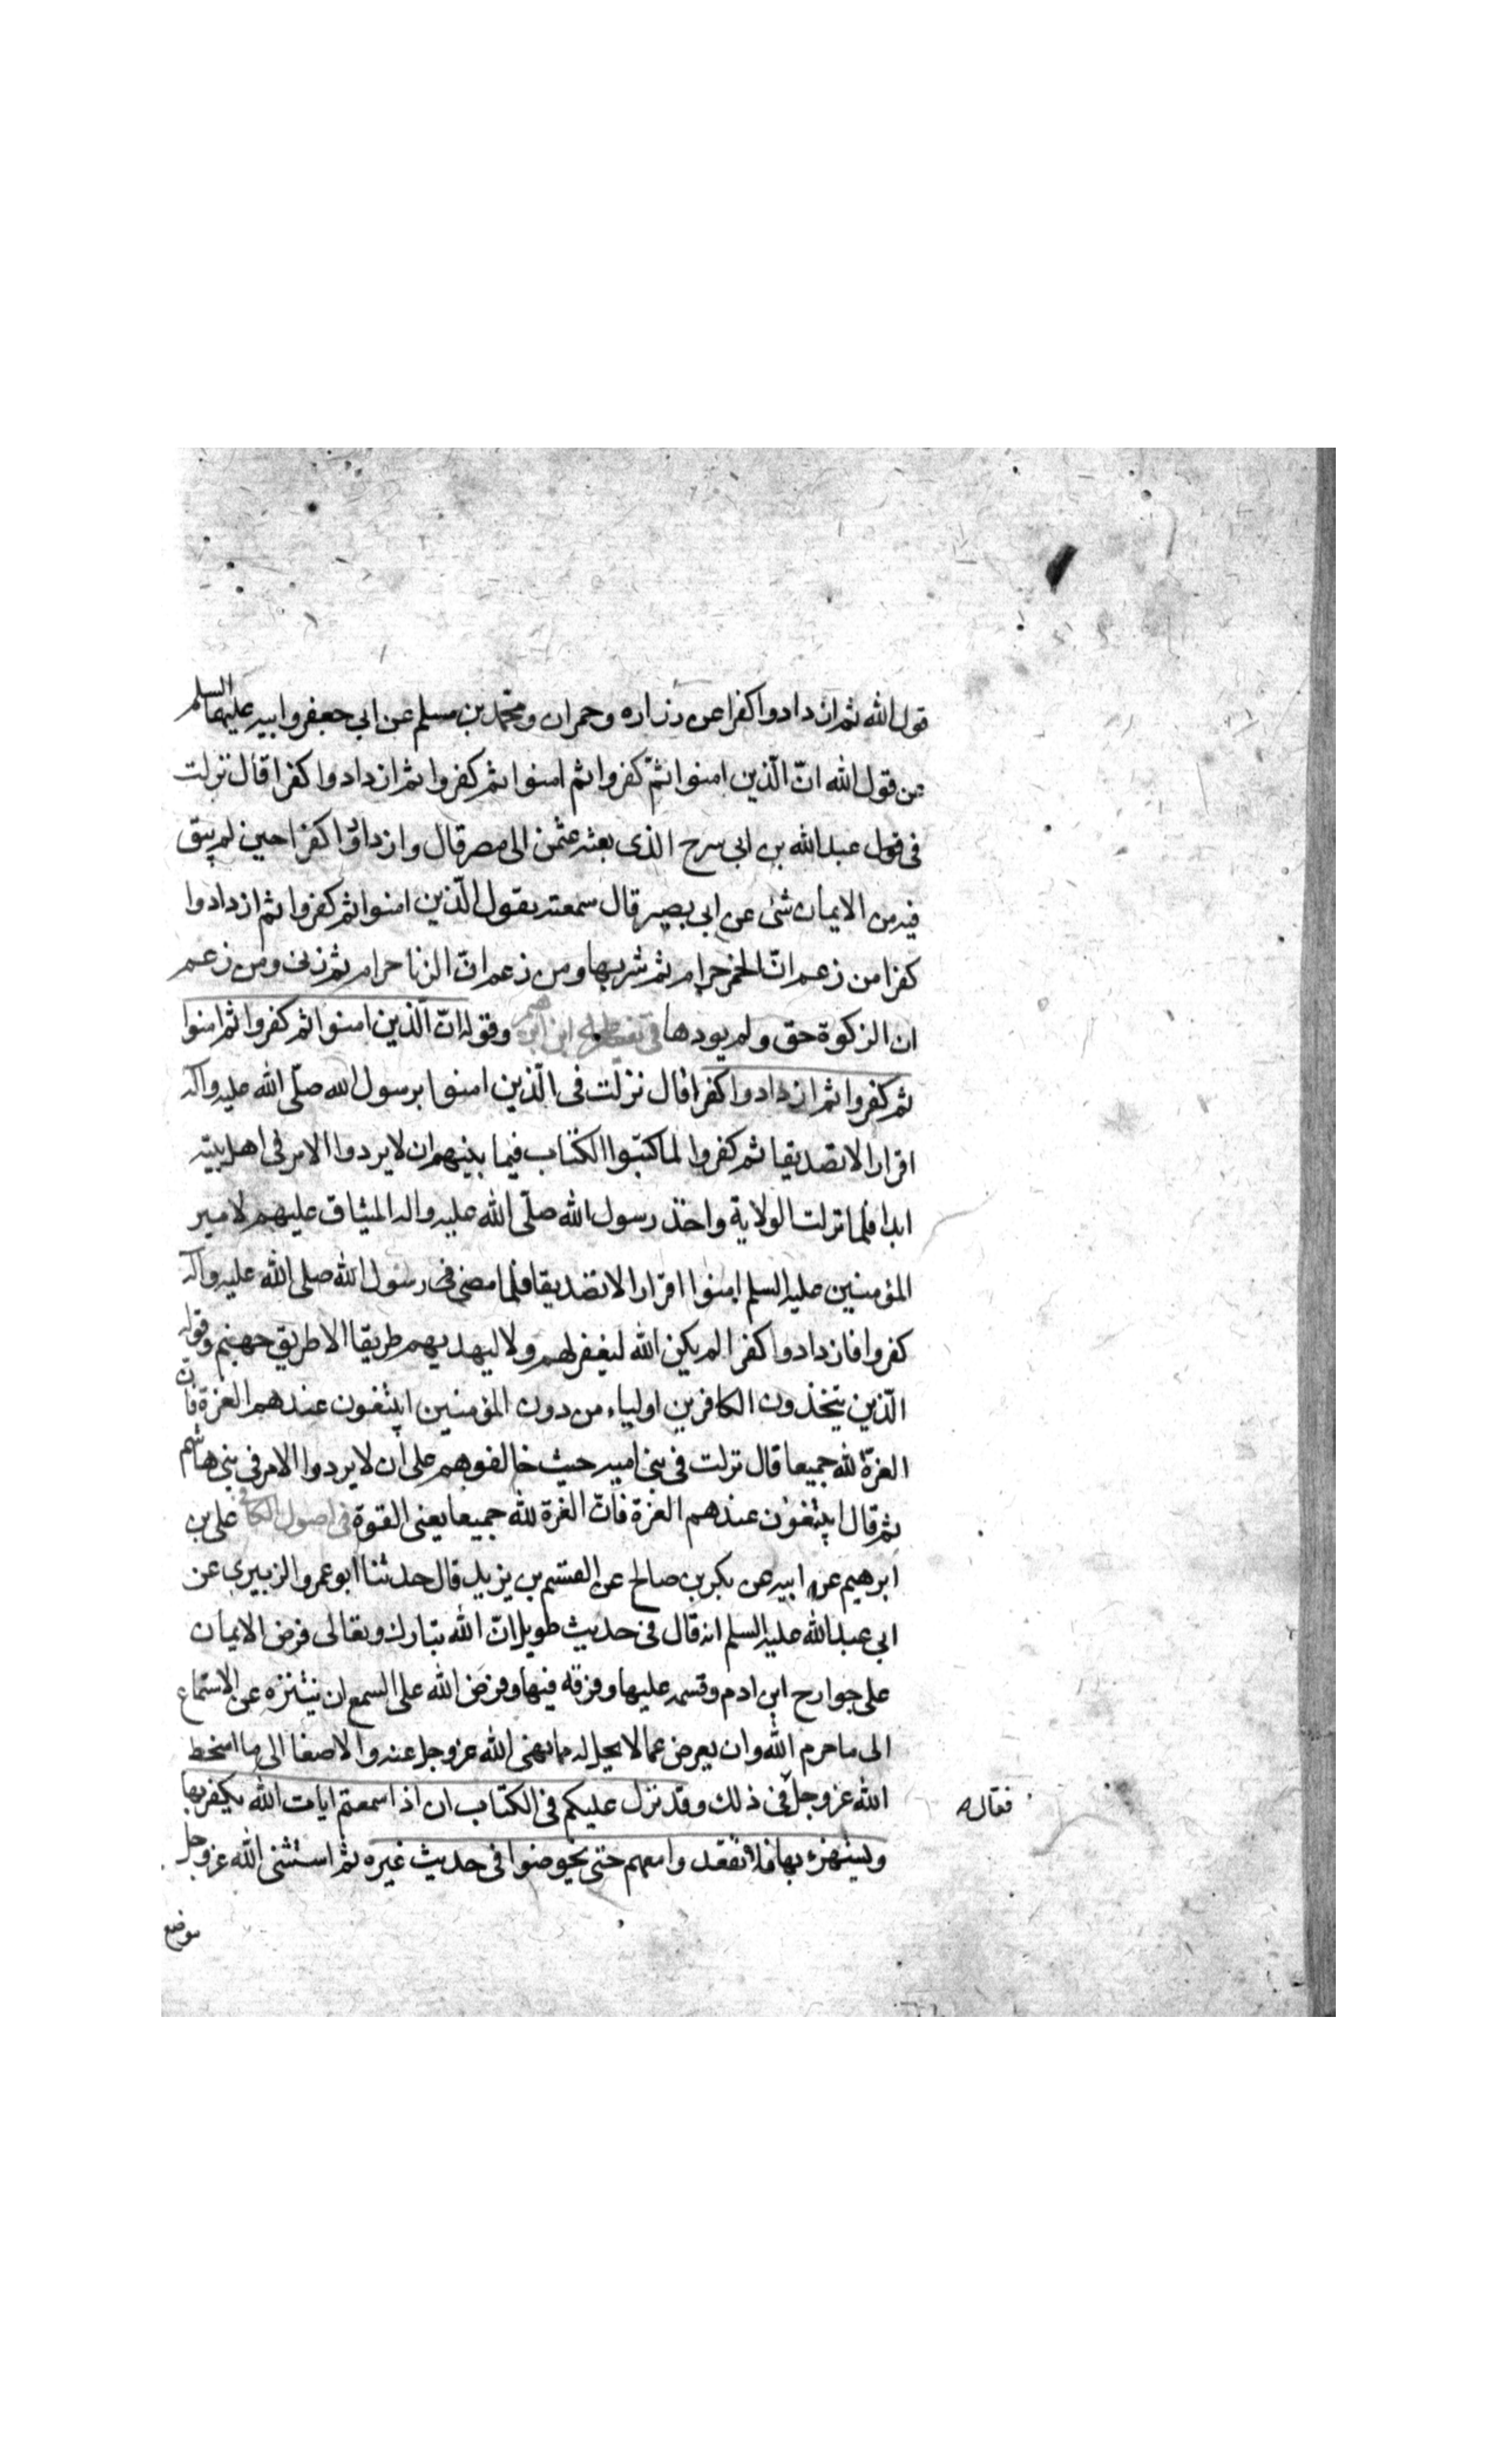 قول الله ثم ازدادوا كفرا عن زراره وحمران ومحمّد بن مسلم عن ابي جعفر وابيه عليهما السلم
عن قول الله انّ الّذين امنوا ثمّ كفروا ثم امنوا ثم كفروا ثم ازدادوا كفرا قال نزلت
فى عبد الله بن ابى سرح الذى بعثه عثمن الى مصر قال وازدادوا كفرا حين لم يبق
فيه من الايمان شئ عن ابى بصير قال سمعته يقول الّذين امنوا ثم كفروا ثم ازدادوا
كفرا من زعم انّ الخمر حرام ثم شربها ومن زعم انّ الزنا حرام ثم زنى ومن زعم
ان الزكوة حق ولم يودها فى تفسير على ابن ابرهيم وقوله انّ الّذين امنوا ثم كفروا ثم امنوا
ثم كفروا ثم ازدادوا كفرا قال نزلت فى الّذين امنوا برسول الله صلّى الله عليه واله
اقرارا لا تصديقا ثم كفروا لما كتبوا الكتاب فيما بينهم ان لا يردوا الامر فى اهل بيته
ابدا فلما نزلت الولاية واخذ رسول الله صلّى الله عليه واله الميثاق عليهم لامير
المؤمنين عليه السلم امنوا اقرارا لا تصديقا فلما مضى رسول الله صلى الله عليه واله
كفروا فازدادوا كفرا لم يكن الله ليغفر لهم ولا ليهديهم طريقا الا طريق جهنم وقوله
الّذين يتخذون الكافرين اولياء من دون المؤمنين ايبتغون عندهم العزة فانّ
العزة لله جميعا قال نزلت فى بنى اميه حيث خالفوهم على ان لا يردوا الامر فى بنى هاشم
ثم قال ايبتغون عندهم العزة فانّ العزة لله جميعا يعنى القوة فى اصول الكافى على بن
ابرهيم عن ابيه عن بكر بن صالح عن القسم بن يزيد قال حدثنا ابو عمرو الزبيرى عن
ابى عبد الله عليه السلم انه قال فى حديث طويل انّ الله تبارك وتعالى فرض الايمان
على جوارح ابن ادم وقسمه عليها وفرقه فيها وفرض الله على السمع ان يتنزه عن الاستماع
الى ما حرم الله وان يعرض عما لا يحل له مما نهى الله عز وجل عنه والاصغا الى ما اسخط
الله عز وجل فى ذلك وقد نزل عليكم فى الكتاب ان اذا سمعتم ايات الله يكفر بها
فقال
ويستهزء بها فلا تقعدوا معهم حتى يخوضوا فى حديث غيره ثم استثنى الله عز وجل
موضع